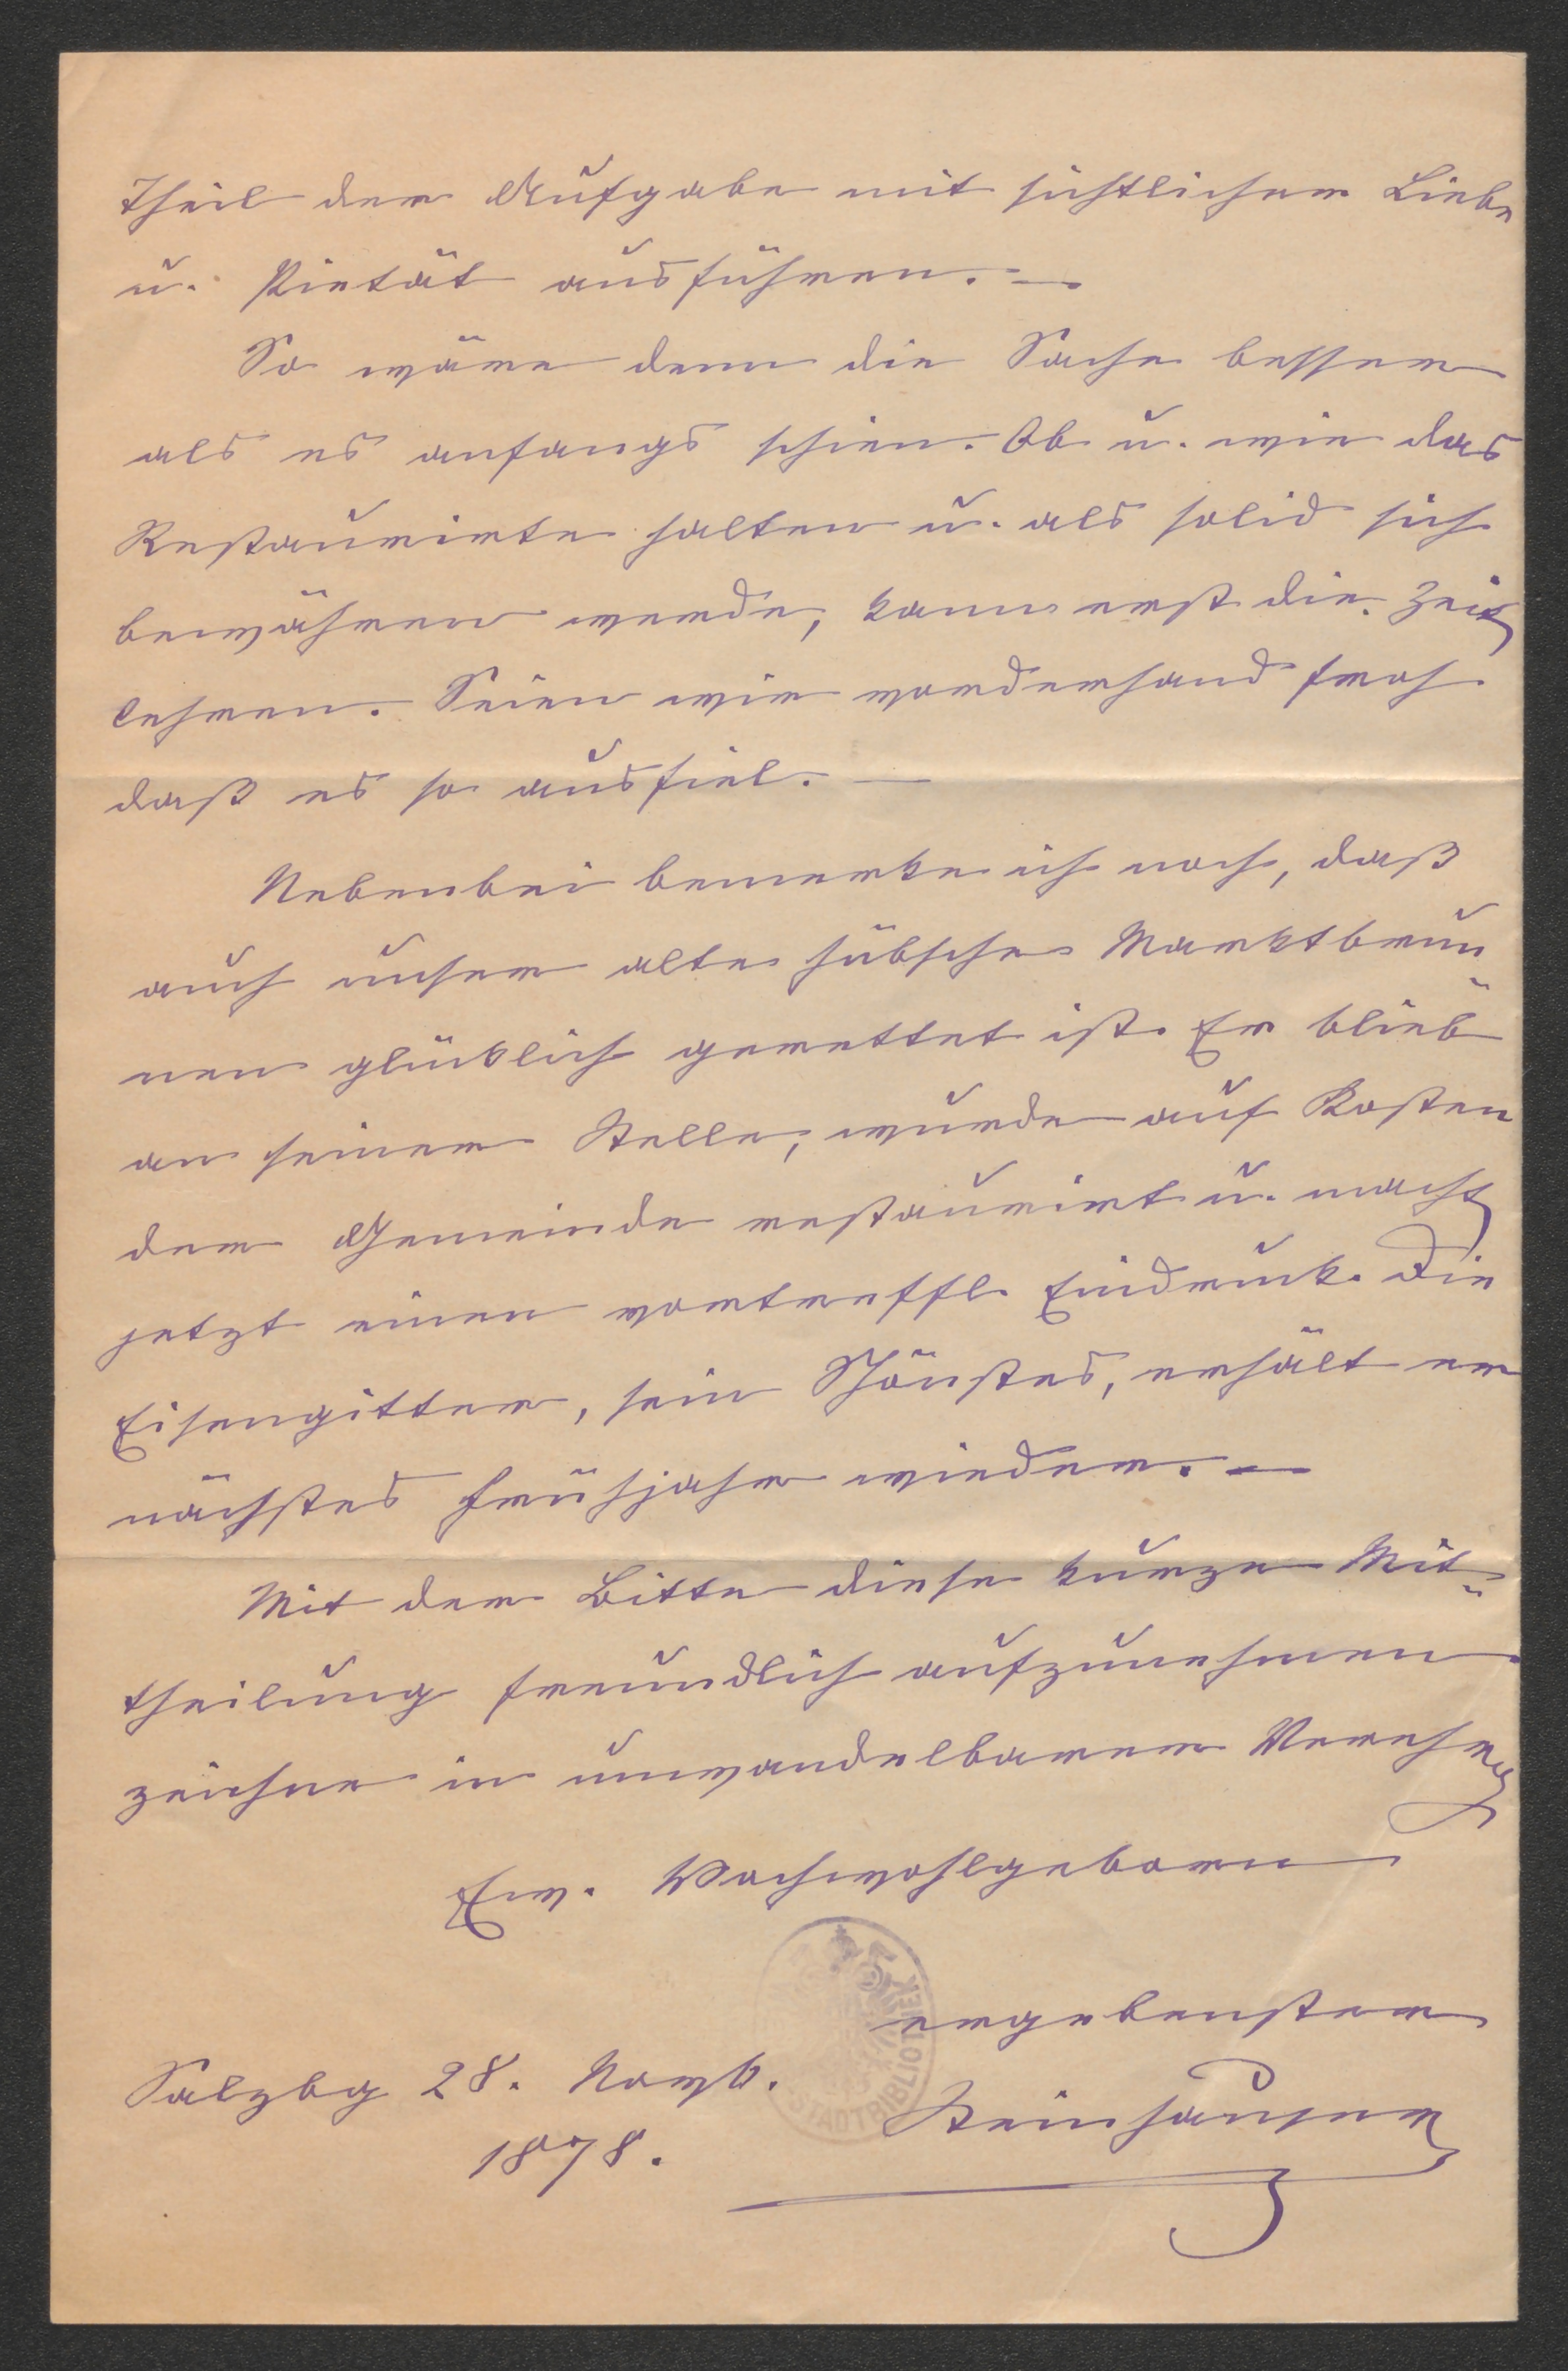 Theil der Aufgabe mit sichtlicher Liebe
u. Pietät ausführen. —
So wäre denn die Sache besser
als es anfangs schien. Ob u. wie das
Restaurirte halten u. als solid sich
bewähren werde, kann erst die Zeit
lehren. Seien wir vorderhand froh
daß es so ausfiel. —
Nebenbei bemerke ich noch, daß
auch unser alter hübscher Marktbrun-
nen glücklich gerettet ist. Er blieb
an seiner Stelle, wurde auf Kosten
der Gemeinde restaurirt u. macht
jetzt einen vortreffl. Eindruck. Die
Eisengitter, sein Schönstes, erhält er
nächstes Frühjahr wieder. —
Mit der Bitte diese kurze Mit-
theilung freundlich aufzunehmen
zeichne in unwandelbarer Verehrg
Euer. Hochwohlgeboren
ergebenster
Salzbg 28. Novb. Steinhauser
1878.
STADTBIBLIOTHEK